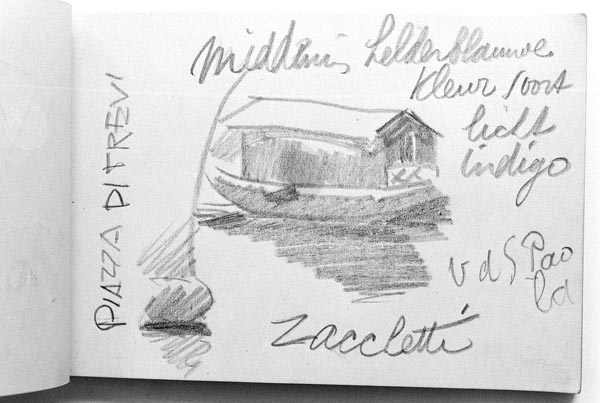 PIAZZA DI TREVI
midden in helderblauwe
kleur soort
licht
indigo
v d S Pao
la
Zaccletti